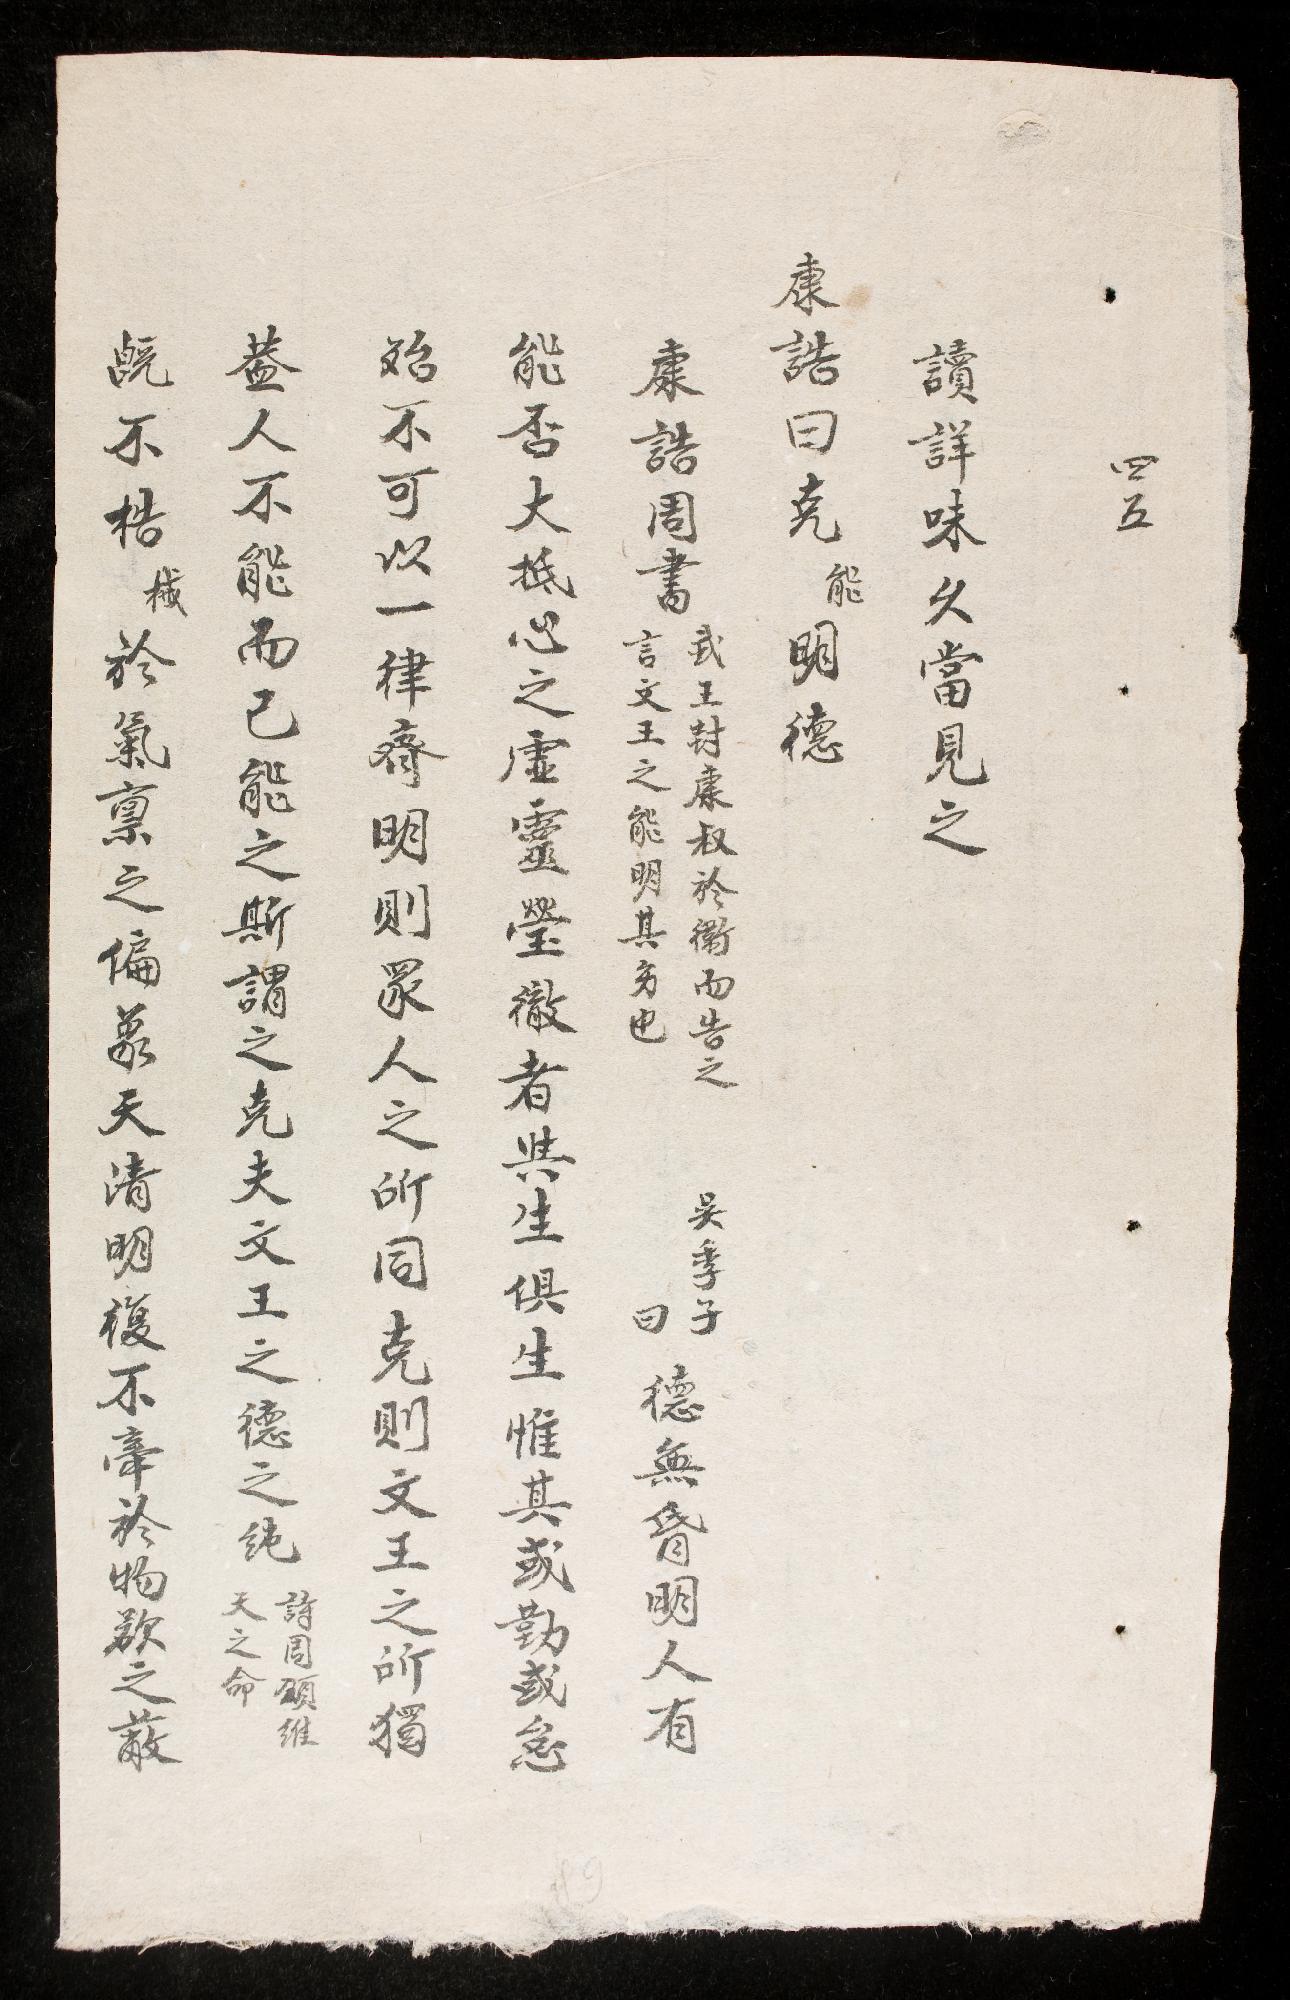 四五
讀詳味久當見之
康誥曰克能明德
康誥周書武王封康叔於衛而告之言文王之能明其方也吳季子曰德無昏明人有
能否大抵心之虛靈瑩徹者與生俱生惟其或勤或怠
始不可以一律齊明則眾人之所同克則文王之所獨
蓋人不能而己能之斯謂之克夫文王之德之純詩周頌維天之命
既不梏械於氣禀之偏蒙天清明復不牽於物欲之蔽